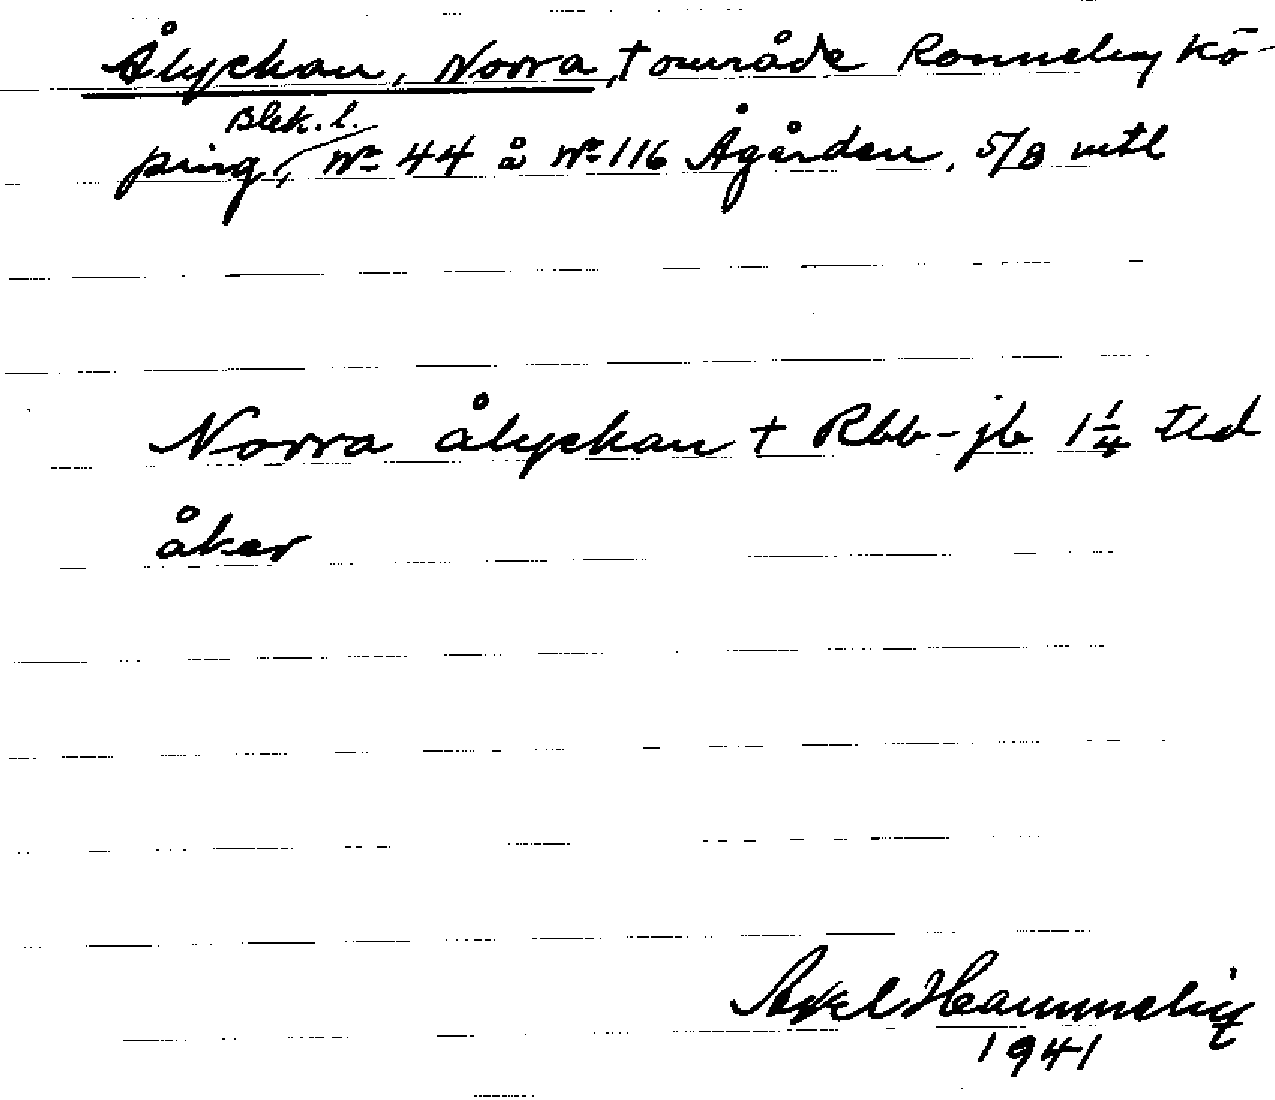 Ålyckan, Norra, † område Ronneby kö-
Blek. l.
ping, Nr 44 å Nr 116 Ågården, 5/8 mtl
Norra ålyckan † Rbb-jb 1 1/4 tld
åker
Axel
1941